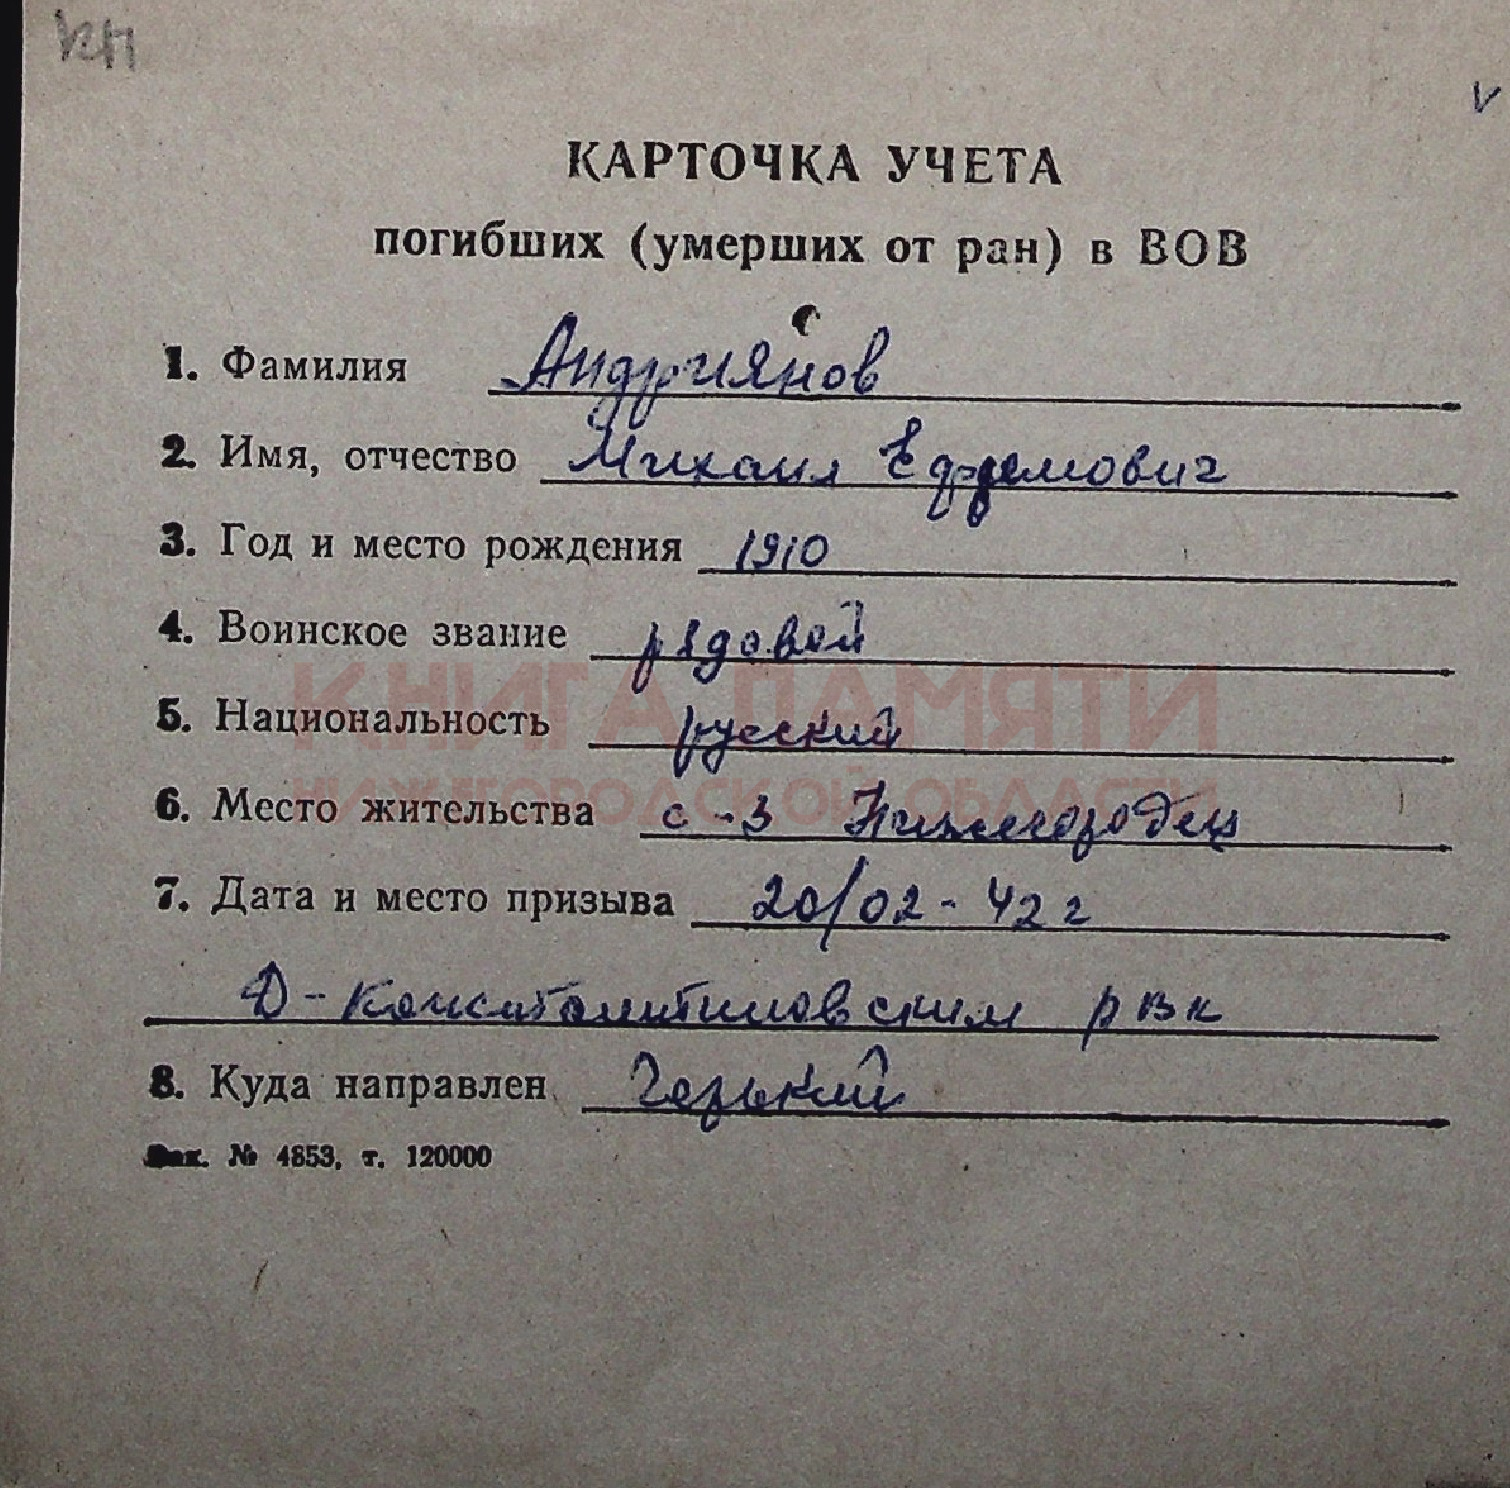 КН
V
КАРТОЧКА УЧЕТА
погибших (умерших от ран) в ВОВ
1. Фамилия Андриянов
2. Имя, отчество Михаил Ефремович
3. Год и место рождения 1910
4. Воинское звание рядовой
5. Национальность русский
КНИГА ПАМЯТИ
НИЖЕГОРОДСКОЙ ОБЛАСТИ
6. Место жительства с-з Нижегородец
7. Дата и место призыва 20/02-42 г
Д-Константиновским рвк
8. Куда направлен Горький
Зак. № 4853, т. 120000